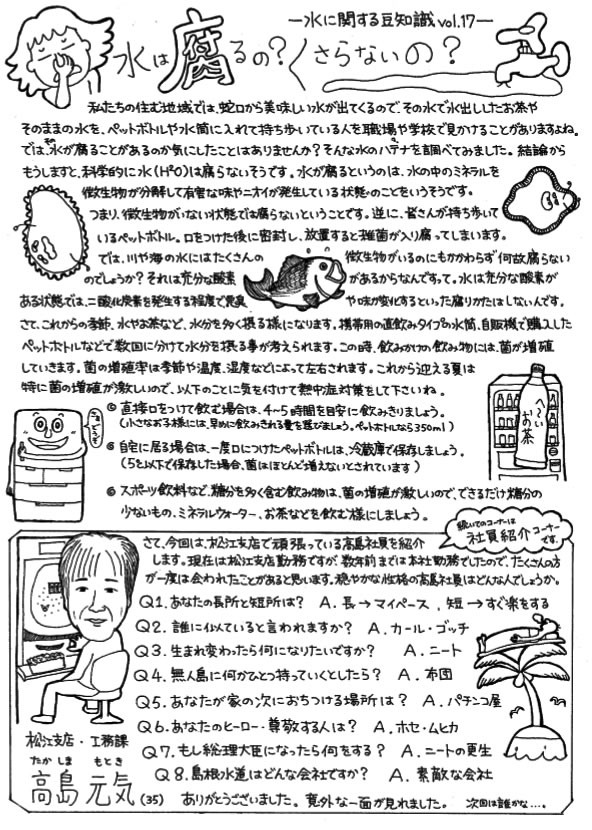 ―水に関する豆知識 vol.17―
水は腐るの？くさらないの？
私たちの住む地域では、蛇口から美味しい水が出てくるので、その水で水出ししたお茶や
そのままの水を、ペットボトルや水筒に入れて持ち歩いている人を職場や学校で見かけることがありますよね。
では、水が腐ることがあるのか気にしたことはありませんか？そんな水のハテナを調べてみました。結論から
もうしますと、科学的に水(H²O)は腐らないそうです。水が腐るというのは、水の中のミネラルを
微生物が分解して有害な味やニオイが発生している状態のことをいうそうです。
つまり、微生物がいない状態では腐らないということです。逆に、皆さんが持ち歩いて
いるペットボトル。口をつけた後に密封し、放置すると雑菌が入り腐ってしまいます。
では、川や海の水にはたくさんの微生物がいるのにもかかわらず何故腐らない
のでしょうか？それは充分な酸素があるからなんですって。水は充分な酸素が
ある状態では、二酸化炭素を発生する程度で悪臭や味が変化するといった腐りかたはしないんです。
さて、これからの季節、水やお茶など、水分を多く摂る様になります。携帯用の直飲みタイプの水筒、自販機で購入した
ペットボトルなどで数回に分けて水分を摂る事が考えられます。この時、飲みかけの飲み物には、菌が増殖
していきます。菌の増殖率は季節や温度、湿度などによって左右されます。これから迎える夏は
特に菌の増殖が激しいので、以下のことに気を付けて熱中症対策をして下さいね。
◎ 直接口をつけて飲む場合は、4〜5時間を目安に飲みきりましょう。
(小さなお子様には、早めに飲みきれる量を選びましょう。ペットボトルなら350ml)
◎ 自宅に居る場合は、一度口につけたペットボトルは、冷蔵庫で保存しましょう。
(5℃以下で保存した場合、菌はほとんど増えないとされています)
◎ スポーツ飲料など、糖分を多く含む飲み物は、菌の増殖が激しいので、できるだけ糖分の
少ないもの、ミネラルウォーター、お茶などを飲む様にしましょう。
へ〜いお茶
続いてのコーナーは
社員紹介コーナー
です。
さて、今回は、松江支店で頑張っている高島社員を紹介
します。現在は松江支店勤務ですが、数年前までは本社勤務でしたので、たくさんの方
が一度は会われたことがあると思います。穏やかな性格の高島社員はどんな人でしょうか。
Q1. あなたの長所と短所は？ A. 長→マイペース、短→すぐ楽をする
Q2. 誰に似ていると言われますか？ A. カール・ゴッチ
Q3. 生まれ変わったら何になりたいですか？ A. ニート
Q4. 無人島に何かひとつ持っていくとしたら？ A. 布団
Q5. あなたが家の次におちつける場所は？ A. パチンコ屋
Q6. あなたのヒーロー・尊敬する人は？ A. ホセ・ムヒカ
Q7. もし総理大臣になったら何をする？ A. ニートの更生
Q8. 島根水道はどんな会社ですか？ A. 素敵な会社
松江支店・工務課
たかしま もとき
高島 元気(35)
ありがとうございました。意外な一面が見れました。 次回は誰かな…。